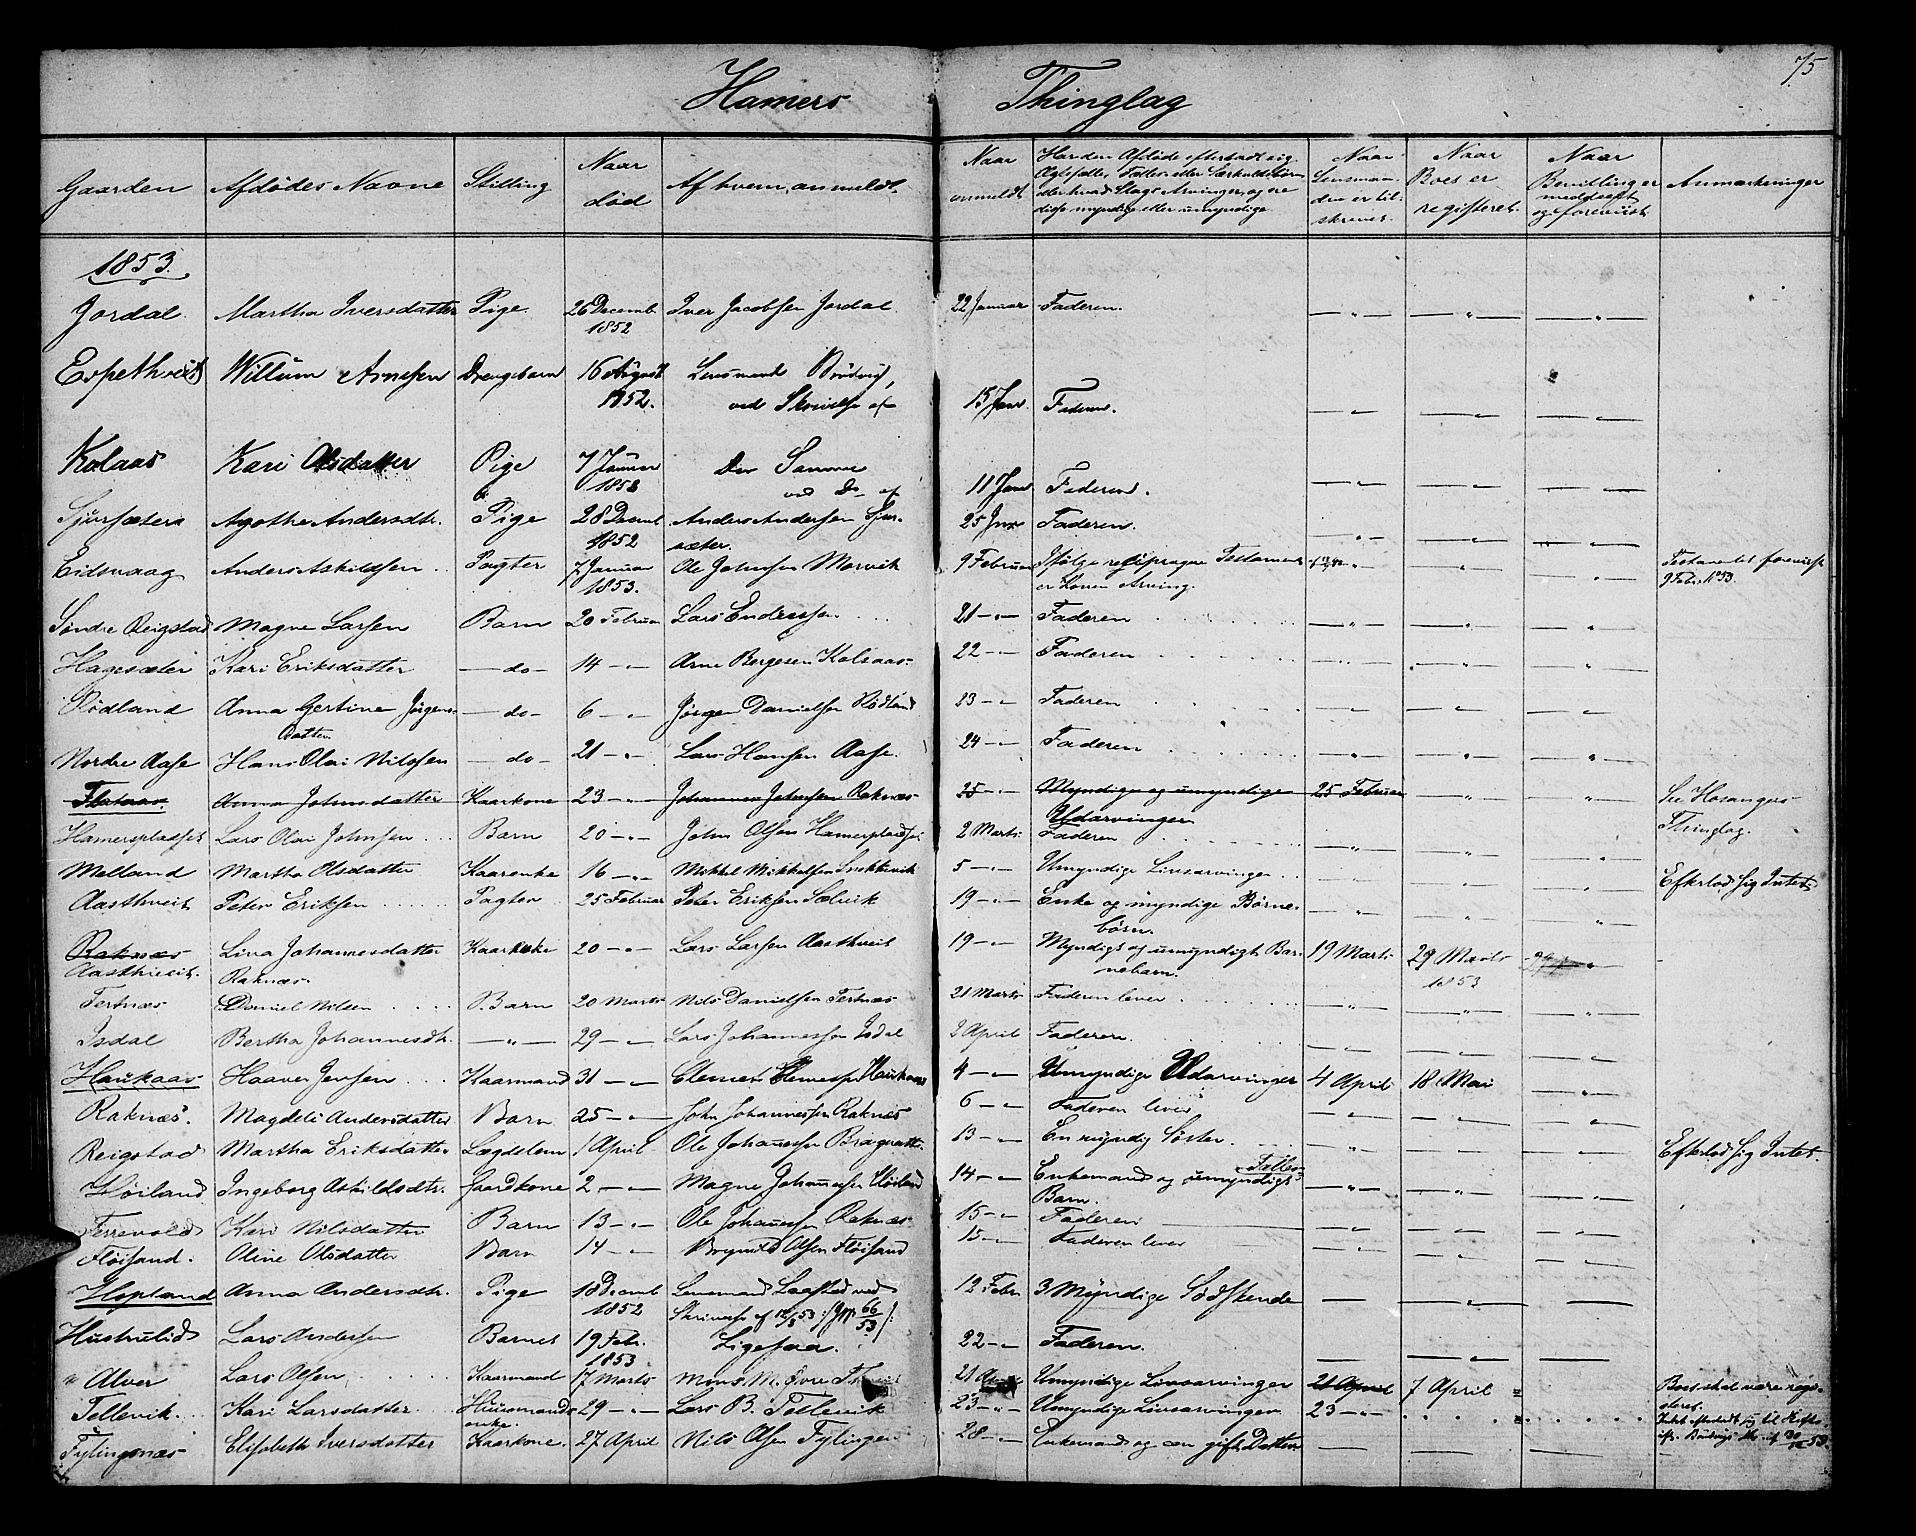 75
Hamers Thinglag
Gaarden | Afdødes Navne | Stilling | Naar død | Af hvem anmeldt. | Naar anmeldt | Har den Afdøde efterladt sig Ægtefælle, Fælles eller Særkuldsbørn eller hvad Slags Arvinger, og ere disse myndige eller umyndige | Naar Lensmanden er tilskrevet. | Naar Boet er registeret. | Naar Bevilling er meddeelt og foreviist | Anmærkninger
1853.
Jordal. | Martha Iversdatter | Pige. | 26 Decemb. 1852 | Iver Jacobsen Jordal. | 22 Januar | Faderen. | — " — | — " — | — " —
Espethveit | Willum Arnesen | Drengebarn | 16 August 1852. | Lensmand Brödvig, ved Skrivelse af | 15 Jan. | Faderen. | — " — | — " — | — " —
Kolaas | Kari Olsdatter | Pige | 7 Januar 1853 | Den Samme ved Do af | 11 Jan. | Faderen. | — " — | — " — | — " —
Sjursæter | Agothe Andersdtr. | Pige | 28 Decemb. 1852 | Anders Andersen Sjursæter. | 25 Jan. | Faderen. | — " — | — " — | — " —
Eidsvaag | Anders Askildsen | Pagter | 7 Januar 1853. | Ole Johnsen Morvik | 9 Februar | Ifølge Testament er Konen Arving. | — " — | — " — | Testamentet foreviist 9 Febr. 1853.
Søndre Reigstad | Magne Larsen | Barn | 20 Februar | Lars Endresen | 21 — " — | Faderen | — " — | — " — | — " —
Hagesæter | Kari Eriksdatter | — do — | 14 — " — | Arne Bergesen Kolaas | 22 — " — | Faderen | — " — | — " — | — " —
Rødland | Anna Gertine Jørgensdatter | — do — | 6 — " — | Jørgen Danielsen Rødland | 23 — " — | Faderen | — " — | — " — | — " —
Nordre Aase | Hans Olai Nilssen | — do — | 21 — " — | Lars Hansen Aase. | 24 — " — | Faderen | — " — | — " — | — " —
Flataas | Anna Johnsdatter | Kaarkone | 23 — " — | Johannes Johnsen Raknæs | 25 — " — | Myndige og umyndige Udarvinger | 25 Februar | — " — | — " — | See Hosangers Thinglag.
Hamerspladset | Lars Olai Johnsen | Barn | 20 — " — | John Olsen Hamerspladset | 2 Marts | Faderen | — " — | — " — | — " —
Melland | Martha Olsdatter | Kaarenke | 16 — " — | Mikkel Mikkelsen Snekkevik | 5 — " — | Umyndige Livsarvinger | — " — | — " — | — " — | Efterlod sig Intet
Aasthveit | Peter Eriksen | Pagter | 25 Februar | Peter Eriksen Sælvik | 19 — " — | Enke og myndige Børnebørn. | — " — | — " — | — " —
Raknæs Aasthveit. | Lina Johannesdatter Raknæs. | Kaarenke | 20 — " — | Lars Larsen Aasthveit | 19 — " — | Myndigt og umyndigt Barnebarn. | 19 Marts | 29 Marts 1853 | — " —
Tertnæs | Daniel Nilsen | Barn | 20 Marts | Nils Danielsen Tertnæs | 21 Marts | Faderen lever | — " — | — " — | — " —
Isdal | Bertha Johannesdtr. | — " — | 29 — " — | Lars Johannessen Isdal | 2 April | Faderen. | — " — | — " — | — " —
Haukaas | Haaver Jensen | Kaarmand | 31 — " — | Clemet Clemetsen Haukaas | 4 — " — | Umyndige Udarvinger | 4 April | 18 Mai | — " —
Raknæs. | Magdeli Andersdatter | Barn | 25 — " — | John Johannessen Raknæs | 6 — " — | Faderen lever | — " — | — " — | — " —
Reigstad | Martha Eriksdatter | Lægdslem | 1 April | Ole Johannessen | 13 — " — | En myndig Søster. | — " — | — " — | — " — | Efterlod sig Intet.
Høiland | Ingeborg Askildsdtr. | Gaardkone | 2 — " — | Magne Johannessen Høiland | 14 — " — | Enkemand og umyndigt Fælles Barn. | — " — | — " — | — " —
Kari Nilsdatter | Barn | 13 — " — | Ole Johannessen Raknæs | 15 — " — | Faderen | — " — | — " — | — " —
Fløisand. | Oline Olsdatter | Barn | 14 — " — | Brynild Olsen Fløisand | 15 — " — | Faderen lever | — " — | — " — | — " —
Hopland | Anna Andersdtr. | Pige | 18 Decemb. 1852 | Lensmand ved Skrivelse af | 12 Febr. | 3 Myndige Sødskende | — | — " — | — " —
Hustrulid | Lars Andersen | Barnet | 19 Febr. 1853 | Ligesaa. | 22 — " — | Faderen. | — | — " — | — " —
" Alver | Lars Olsen | Kaarmand | 17 Marts | Mons M. Øvre | 21 | Umyndige Livsarvinger | 21 April | 7 April | Boet skal være registeret.
Tellevik | Kari Larsdatter | Huusmands enke. | 29 — " — | Lars B. Tellevik | 23 — " — | Umyndige Livsarvinger | 23 — " —
Fylingsnæs | Elisabeth Iversdatter | Kaarkone. | 27 April | Nils Olsen Fylingen | 28 — " — | Enkemand og en gift Datter | — | — " — | — " —